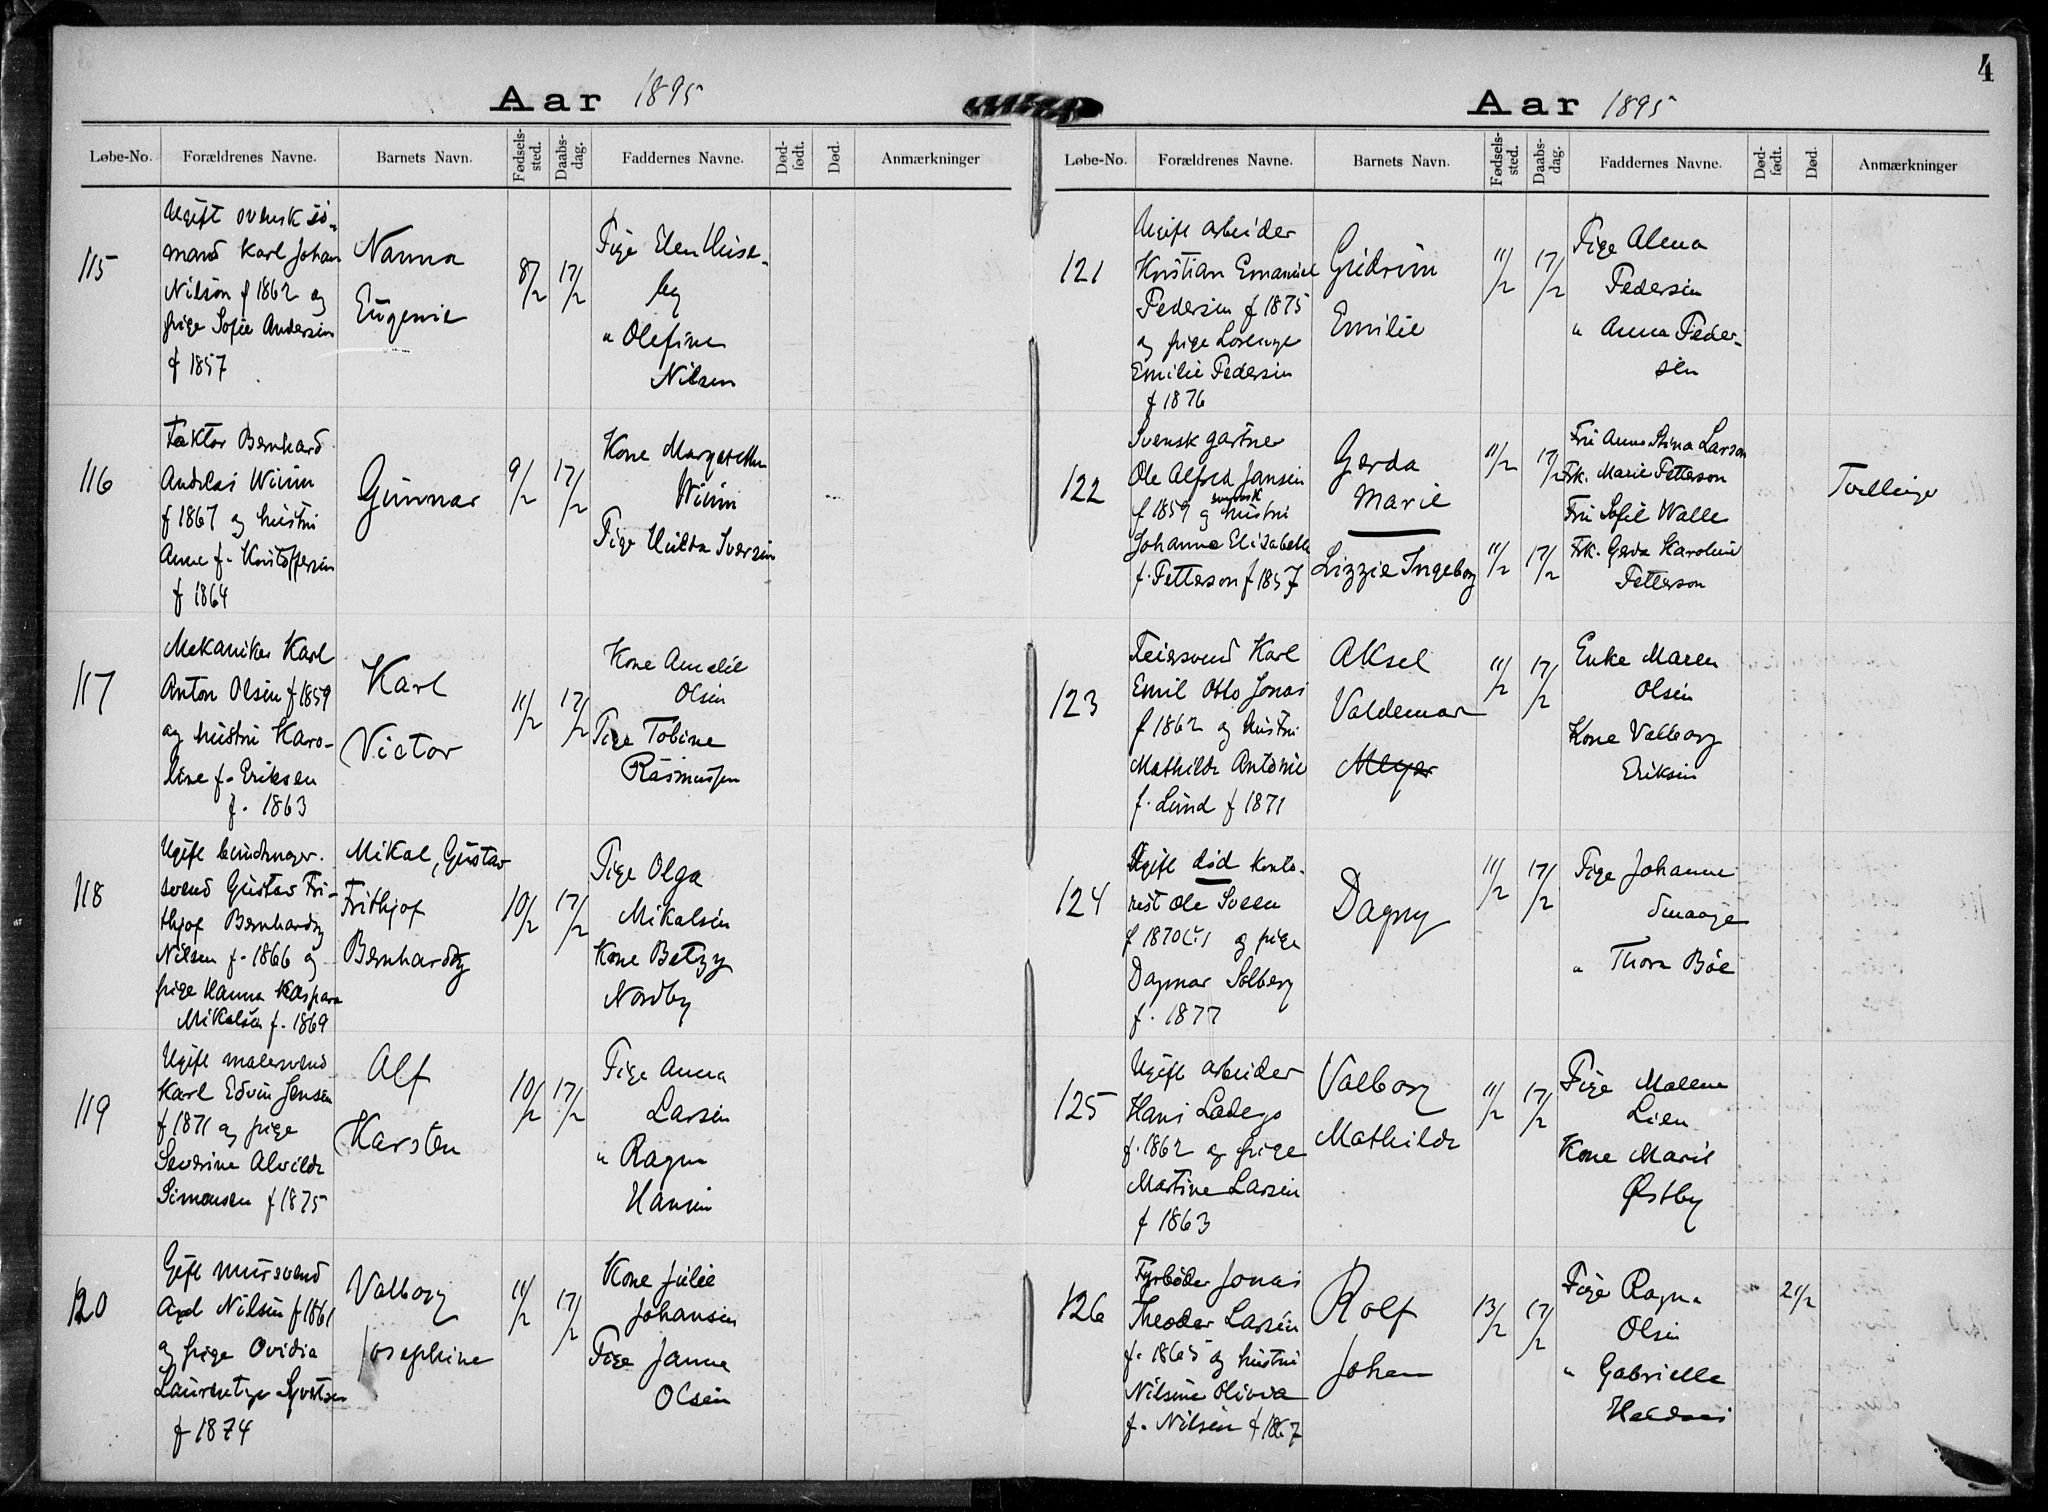 Aar 1895
Løbe-No. Forældrenes Navne. Barnets Navn. Fødsels-sted. Daabs-dag. Faddernes Navne. Død-født. Død. Anmærkninger
115
Ugift svensk sø-
mand Karl Johan
Nilson f 1862 og
pige Sofie Andersen
f 1857
Nanna
Eugenie
8/2
17/2
Pige Elen Huse-
by
" Olefine
Nilsen
116
Faktor Bernhard
Andreas Wiium
f 1867 og hustru
Anne f. Kristoffersen
f 1864
Gunnar
9/2
17/2
Kone Margrethe
Wiium
Pige Hulda Iversen
117
Mekaniker Karl
Anton Olsen f 1859
og hustru Karo-
line f. Eriksen
f. 1863
Karl
Victor
11/2
17/2
Kone Amelie
Olsen
Pige Tobine
Rasmussen
118
Ugift
svend Gustav Fri-
thjof Bernhardby
Nilsen f. 1866 og
pige Hanna Kaspara
Mikalsen f. 1869
Mikal, Gustav
Frithjof
Bernhardby
10/2
17/2
Pige Olga
Mikalsen
Kone Betzy
Nordby
119
Ugift malersvend
Karl Edvin Jensen
f 1871 og pige
Severine Alvilde
Simonsen f 1875
Alf
Karsten
10/2
17/2
Pige Anna
Larsen
" Ragna
Hansen
120
Gift mursvend
Axel Nilsen f 1861
og pige Ovidia
Laurentze
f 1874
Valborg
Josephine
11/2
17/2
Kone Julie
Johansen
Pige Janna
Olsen
4
Aar 1895
Løbe-No. Forældrenes Navne. Barnets Navn. Fødsels-sted. Daabs-dag. Faddernes Navne. Død-født. Død. Anmærkninger
121
Ugift arbeider
Kristian Emanuel
Pedersen f 1875
og pige Lorentze
Emilie Pedersen
f 1876
Gudrun
Emilie
11/2
17/2
Pige Alma
Pedersen
" Anna Peder-
sen
122
Svensk gartner
Ole Alfred Jansen
f 1859 og svensk hustru
Johanne Elisabeth
f. Petterson f 1857
Gerda
Marie
Lizzie Ingeborg
11/2
17/2
11/2
17/2
Fru Anna Stina Larson
Frk. Marie Petterson
Fru Sofie Walle
Frk. Gerda Karoline
Petterson
Tvillinger
123
Feiersvend Karl
Emil Otto Jonas
f 1862 og hustru
Mathilde Antonie
f. Lund f 1871
Aksel
Valdemar
Meyer
11/2
17/2
Enke Maren
Olsen
Kone Valborg
Eriksen
124
Ugift død konto-
rist Ole Sveen
f 1870(?) og pige
Dagmar Solberg
f. 1877
Dagny
11/2
17/2
Pige Johanne
Smaage
" Thora Bøe
125
Ugift arbeider
Hans Ladego
f. 1862 og pige
Martine Larsen
f 1863
Valborg
Mathilde
11/2
17/2
Pige Malena
Lien
Kone Marie
Østby
126
Fyrbøder Jonas
Theodor Larsen
f. 1865 og hustru
Nilsine Olivia
f. Nilsen f 1867
Rolf
Johan
13/2
17/2
Pige Ragna
Olsen
" Gabrielle
21/2